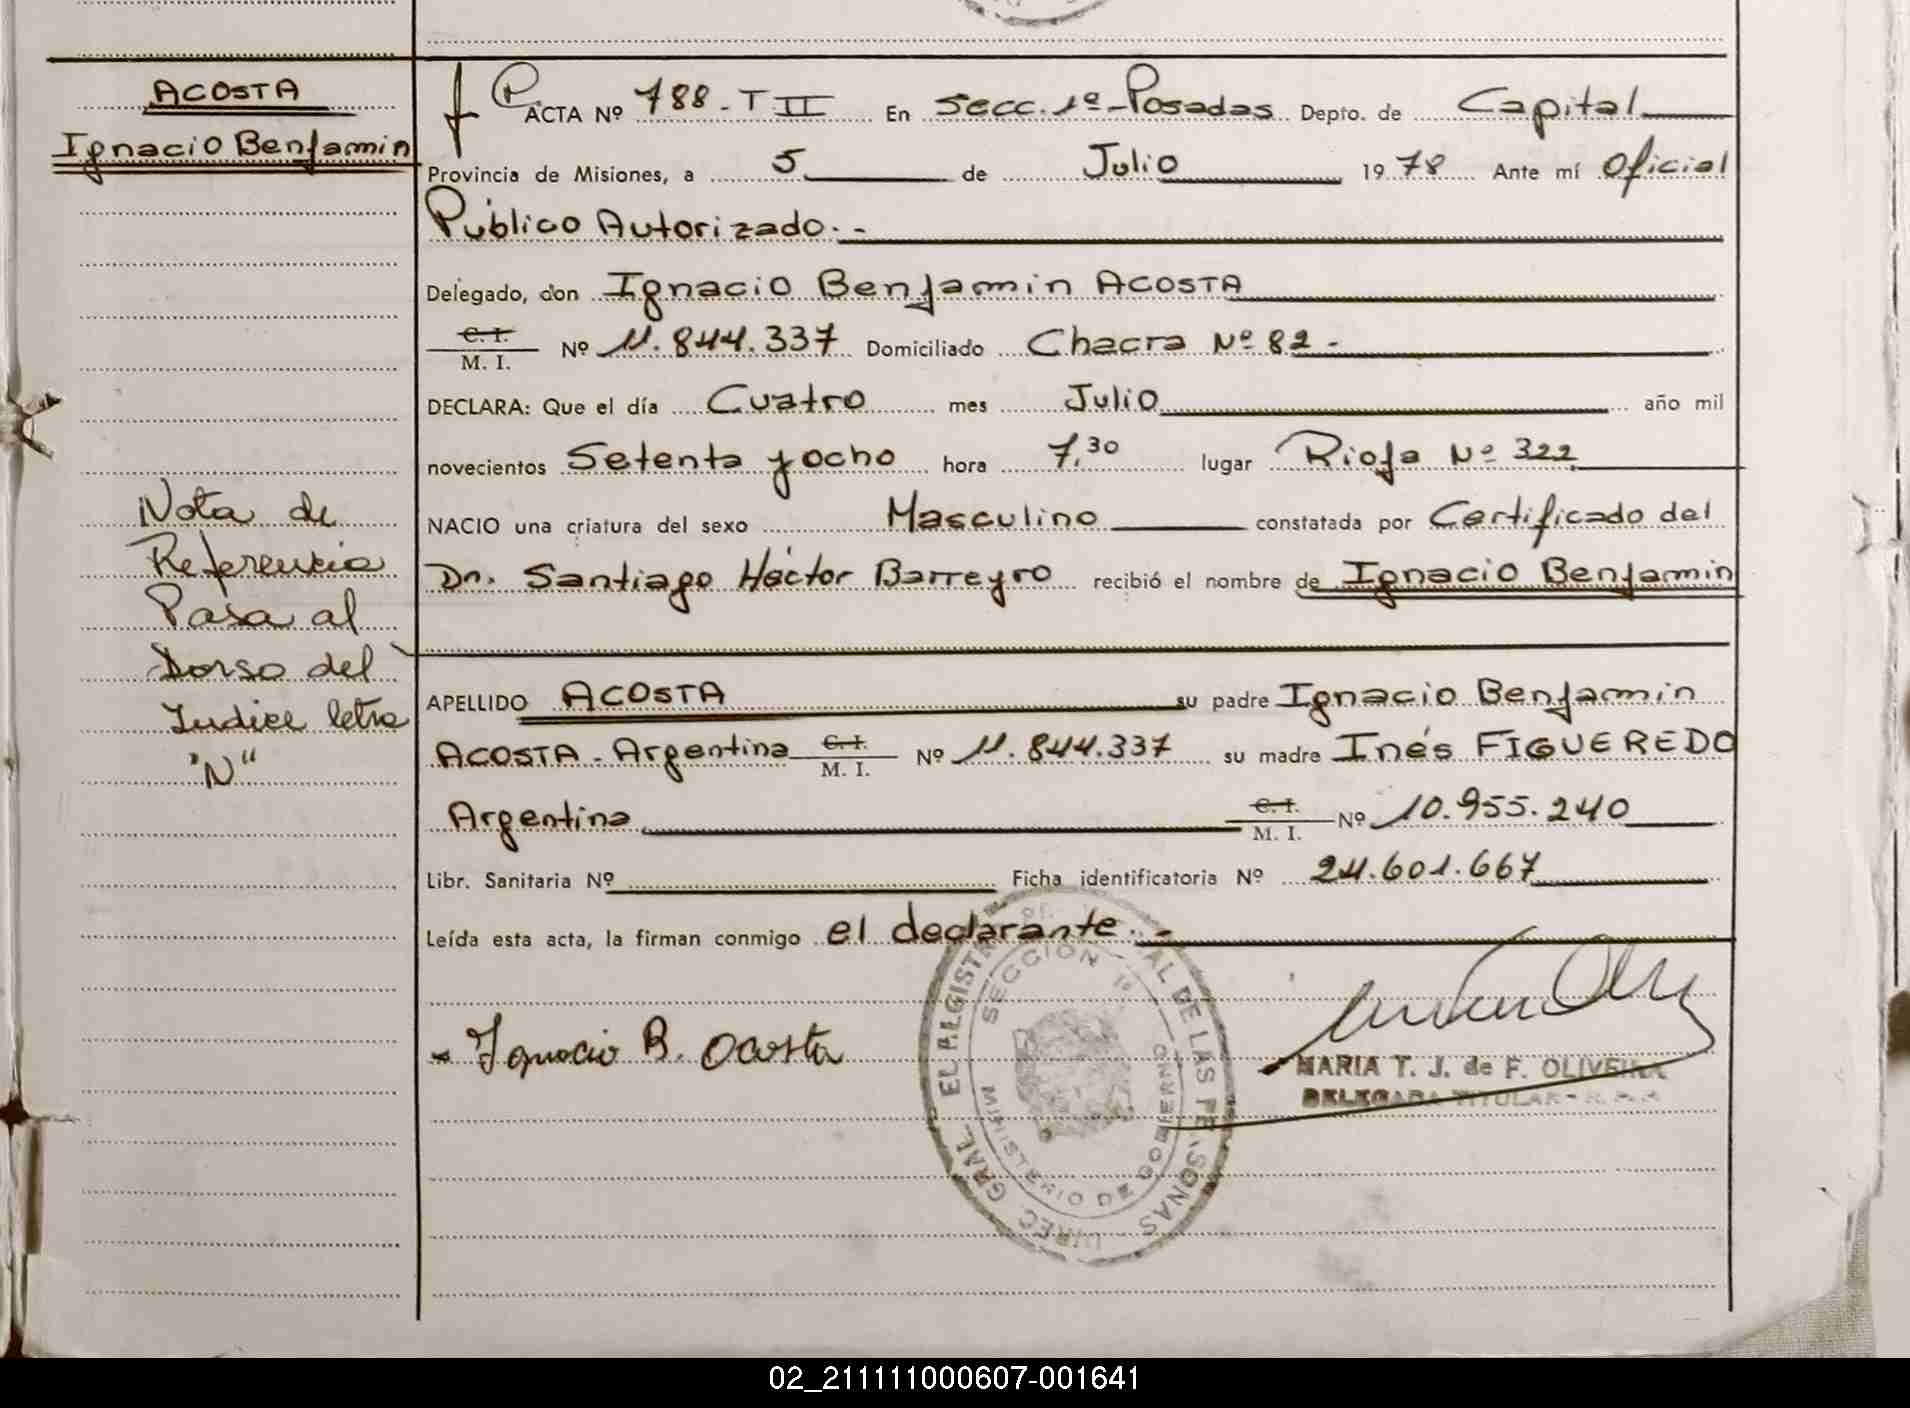 ACOSTA
Ignacio Benjamin
Nota de
Referencia
Pasa al
Dorso del
Indice letra
"N"
P. ACTA Nº 788 - T II En Secc. 1º - Posadas Depto. de Capital
Provincia de Misiones, a 5 de Julio 1978 Ante mí Oficial
Público Autorizado. -
Delegado, don Ignacio Benjamin ACOSTA
C. I. / M. I. Nº 11.844.337 Domiciliado Chacra Nº 82 -
DECLARA: Que el día Cuatro mes Julio año mil
novecientos Setenta y ocho hora 7,30 lugar Rioja Nº 322
NACIO una criatura del sexo Masculino constatada por Certificado del
Dr. Santiago Héctor Barreyro recibió el nombre de Ignacio Benjamin
APELLIDO ACOSTA su padre Ignacio Benjamin
ACOSTA - Argentina C. I. / M. I. Nº 11.844.337 su madre Inés FIGUEREDO
Argentina C. I. / M. I. Nº 10.955.240
Libr. Sanitaria Nº Ficha identificatoria Nº 24.601.667
Leída esta acta, la firman conmigo el declarante. -
Ignacio B. Acosta
DIREC. GRAL. DE LAS PERSONAS
SECCION 1º
MINISTERIO DE GOBIERNO
MARIA T. J. de F. OLIVEIRA
DELEGADA TITULAR
02_211111000607-001641